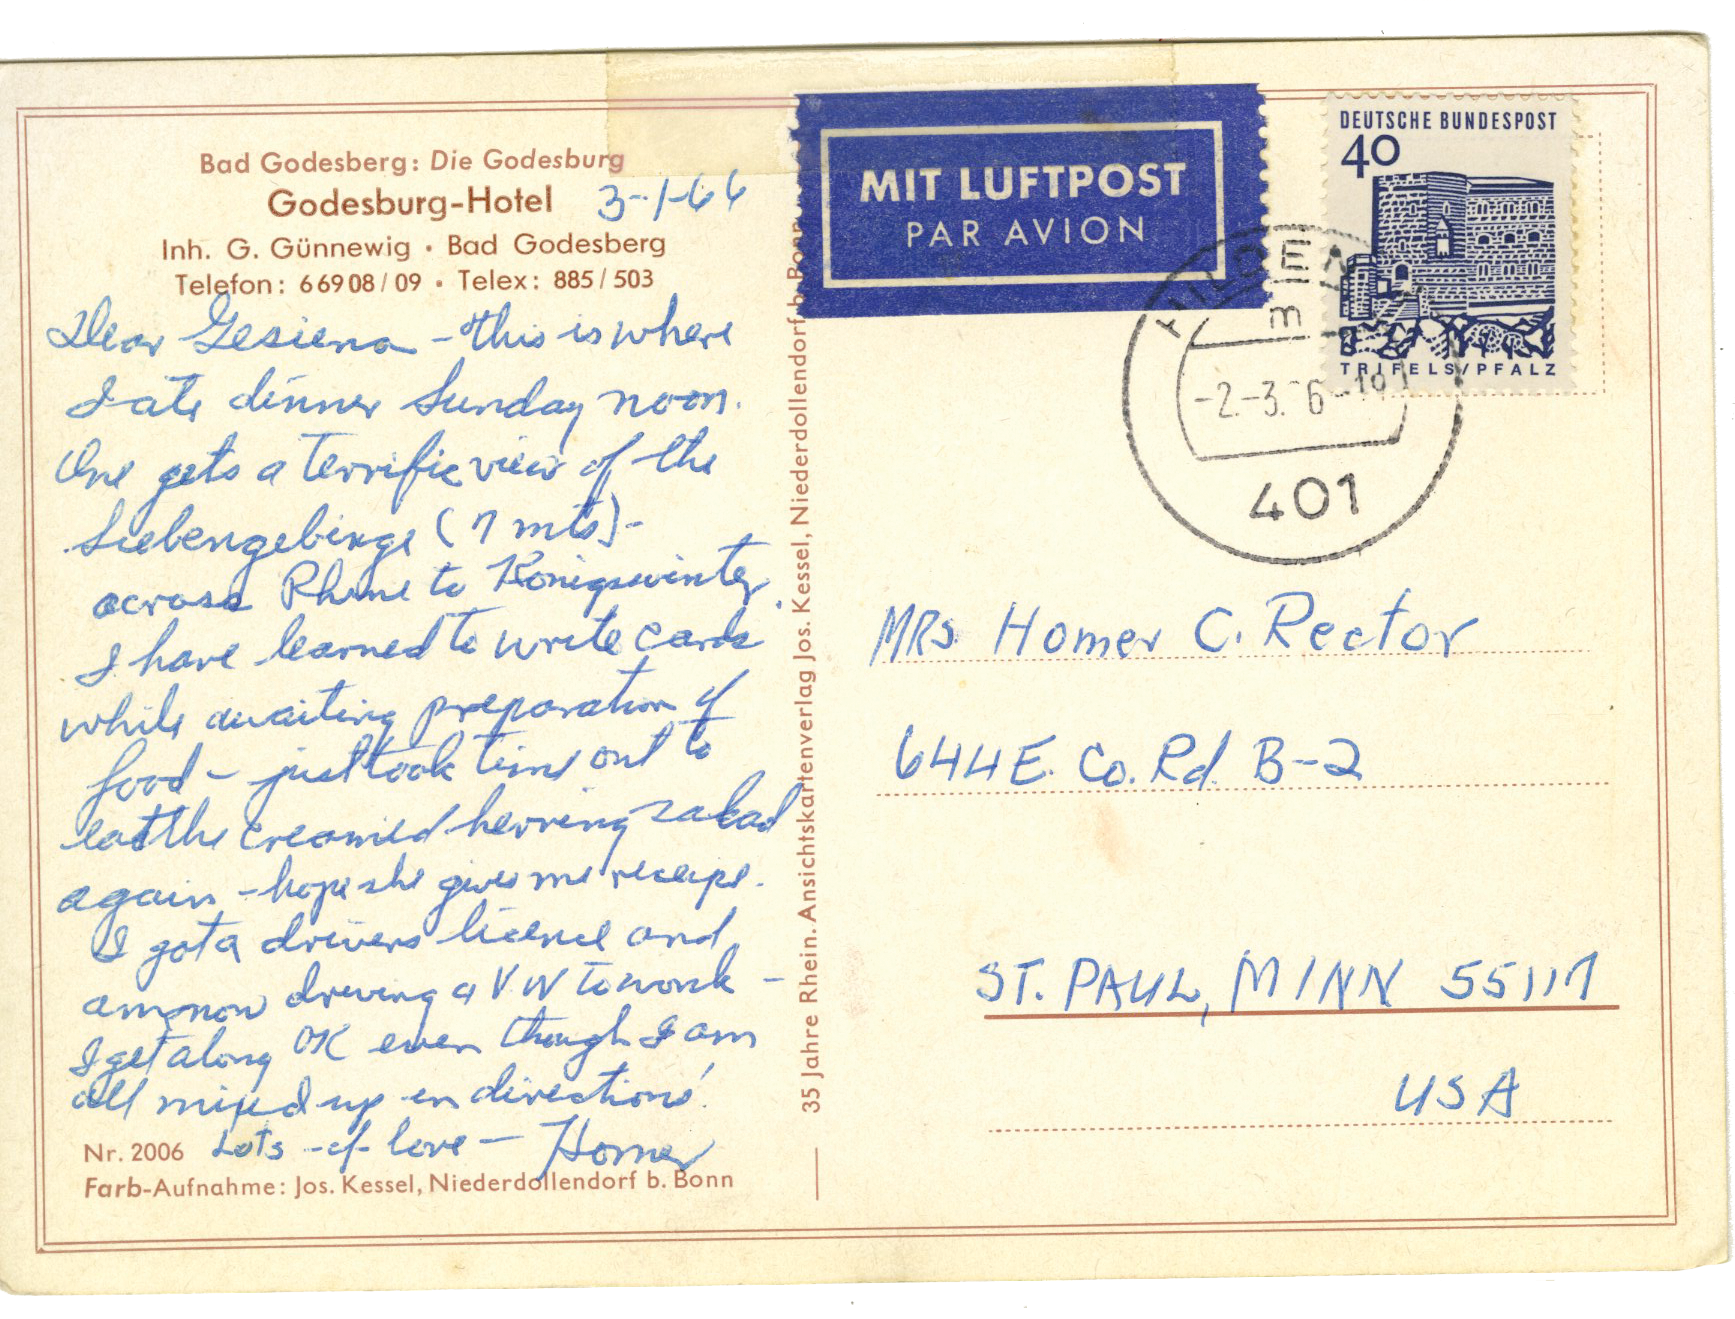 Bad Godesberg: Die Godesburg
Godesburg-Hotel
3-1-66
Inh. G. Günnewig • Bad Godesberg
Telefon: 66908/09 • Telex: 885/503
Dear Gesiena - this is where
I ate dinner Sunday noon.
One gets a terrific view of the
Siebengebirge (7 mts) -
across Rhine to Königswinter.
I have learned to write cards
while awaiting preparation of
food - just took time out to
eat the creamed herring salad
again - hope she gives me receipe.
I got a drivers licence and
am now driving a VW to work -
I get along OK even though I am
all mixed up en directions!
Lots - of - love - Homer
Nr. 2006
Farb-Aufnahme: Jos. Kessel, Niederdollendorf b. Bonn
35 Jahre Rhein. Ansichtskartenverlag Jos. Kessel, Niederdollendorf b. Bonn
MIT LUFTPOST
PAR AVION
DEUTSCHE BUNDESPOST
40
TRIFELS/PFALZ
HILDEN
m
-2.-3. 6-19
401
MRs. Homer C. Rector
644 E. Co. Rd. B-2
ST. PAUL, MINN 55117
USA